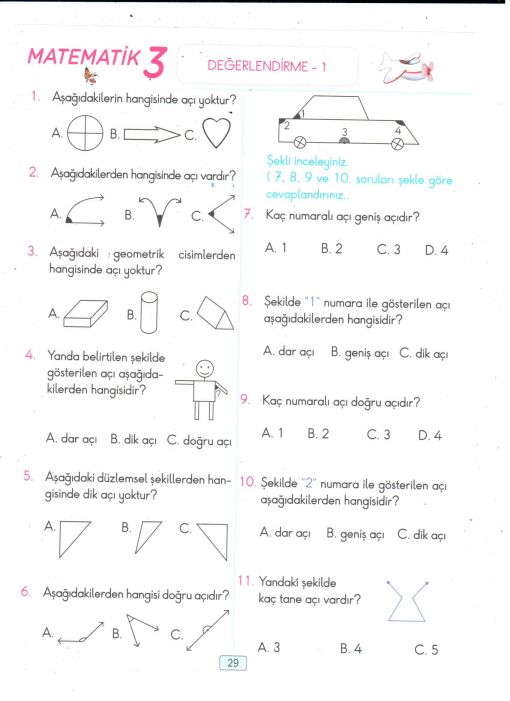 MATEMATİK 3
DEĞERLENDİRME - 1
1. Aşağıdakilerin hangisinde açı yoktur?
A. B. C.
2. Aşağıdakilerden hangisinde açı vardır?
A. B. C.
3. Aşağıdaki geometrik cisimlerden
hangisinde açı yoktur?
A. B. C.
4. Yanda belirtilen şekilde
gösterilen açı aşağıda-
kilerden hangisidir?
?
A. dar açı B. dik açı C. doğru açı
5. Aşağıdaki düzlemsel şekillerden han-
gisinde dik açı yoktur?
A. B. C.
6. Aşağıdakilerden hangisi doğru açıdır?
A. B. C.
1
2 3 4
Şekli inceleyiniz.
( 7, 8, 9 ve 10. soruları şekle göre
cevaplandırınız..
7. Kaç numaralı açı geniş açıdır?
A. 1 B. 2 C. 3 D. 4
8. Şekilde "1" numara ile gösterilen açı
aşağıdakilerden hangisidir?
A. dar açı B. geniş açı C. dik açı
9. Kaç numaralı açı doğru açıdır?
A. 1 B. 2 C. 3 D. 4
10. Şekilde "2" numara ile gösterilen açı
aşağıdakilerden hangisidir?
A. dar açı B. geniş açı C. dik açı
11. Yandaki şekilde
kaç tane açı vardır?
A. 3 B. 4 C. 5
29